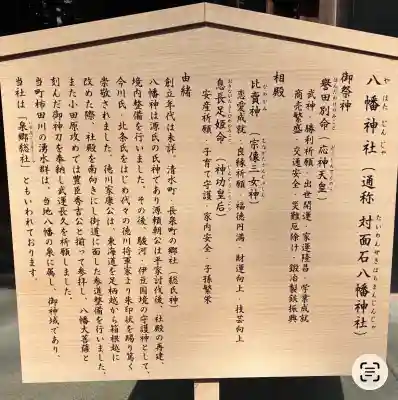 八幡神社(通称 対面石八幡神社)
やはたじんじゃ
たいめんせきはちまんじんじゃ
御祭神
誉田別命(応神天皇)
武神・勝利祈願・出世開運・家運隆昌・学業成就
商売繁盛・交通安全・災難厄除け・鍛冶製鉄振興
相殿
比賣神(宗像三女神)
恋愛成就・良縁祈願・福徳円満・財運向上・技芸向上
息長足姫命(神功皇后)
安産祈願・子育て守護・家内安全・子孫繁栄
由緒
創立年代は未詳。清水町・長泉町の郷社(総氏神)
八幡神は源氏の氏神であり源頼朝公は平家討伐後、社殿の再建、
境内整備を行いました。その後、駿河・伊豆国境の守護神として、
今川氏・北条氏をはじめ代々の徳川将軍家より朱印状を賜り篤く
崇敬されました。徳川家康公は、東海道を足柄越から箱根越に
改めた際、社殿を南向きにし街道に面した参道整備を行いました。
また小田原攻めでは豊臣秀吉公と揃って参拝し、八幡大菩薩と
刻んだ御神刀を奉納し武運長久を祈願しました。
当町柿田川の湧水群は、当地八幡の泉に属し、御神域であり、
当社は「泉郷総社」ともいわれております。